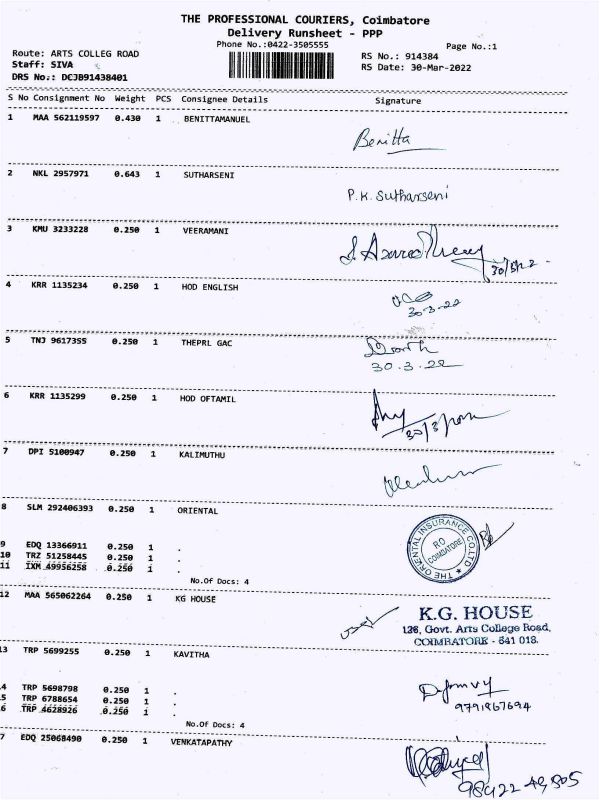 THE PROFESSIONAL COURIERS, Coimbatore
Delivery Runsheet - PPP
Phone No.:0422-3505555
Page No.:1
Route: ARTS COLLEG ROAD
Staff: SIVA
DRS No.: DCJB91438401
RS No.: 914384
RS Date: 30-Mar-2022
S No Consignment No Weight PCS Consignee Details Signature
1 MAA 562119597 0.430 1 BENITTAMANUEL
Benitta
2 NKL 2957971 0.643 1 SUTHARSENI
P.K. Sutharseni
3 KMU 3233228 0.250 1 VEERAMANI
4 KRR 1135234 0.250 1 HOD ENGLISH
30-3-22
5 TNJ 9617355 0.250 1 THEPRL GAC
30.3.22
6 KRR 1135299 0.250 1 HOD OFTAMIL
7 DPI 5100947 0.250 1 KALIMUTHU
8 SLM 292406393 0.250 1 ORIENTAL
THE ORIENTAL INSURANCE CO.LTD
RO
COIMBATORE
9 EDQ 13366911 0.250 1 .
10 TRZ 51258445 0.250 1 .
11 IXM 49956258 0.250 1 .
No.Of Docs: 4
12 MAA 565062264 0.250 1 KG HOUSE
K.G. HOUSE
126, Govt. Arts College Road,
COIMBATORE - 641 018.
13 TRP 5699255 0.250 1 KAVITHA
4 TRP 5698798 0.250 1 .
5 TRP 6788654 0.250 1 .
6 TRP 4628926 0.250 1 .
9791867694
No.Of Docs: 4
7 EDQ 25068490 0.250 1 VENKATAPATHY